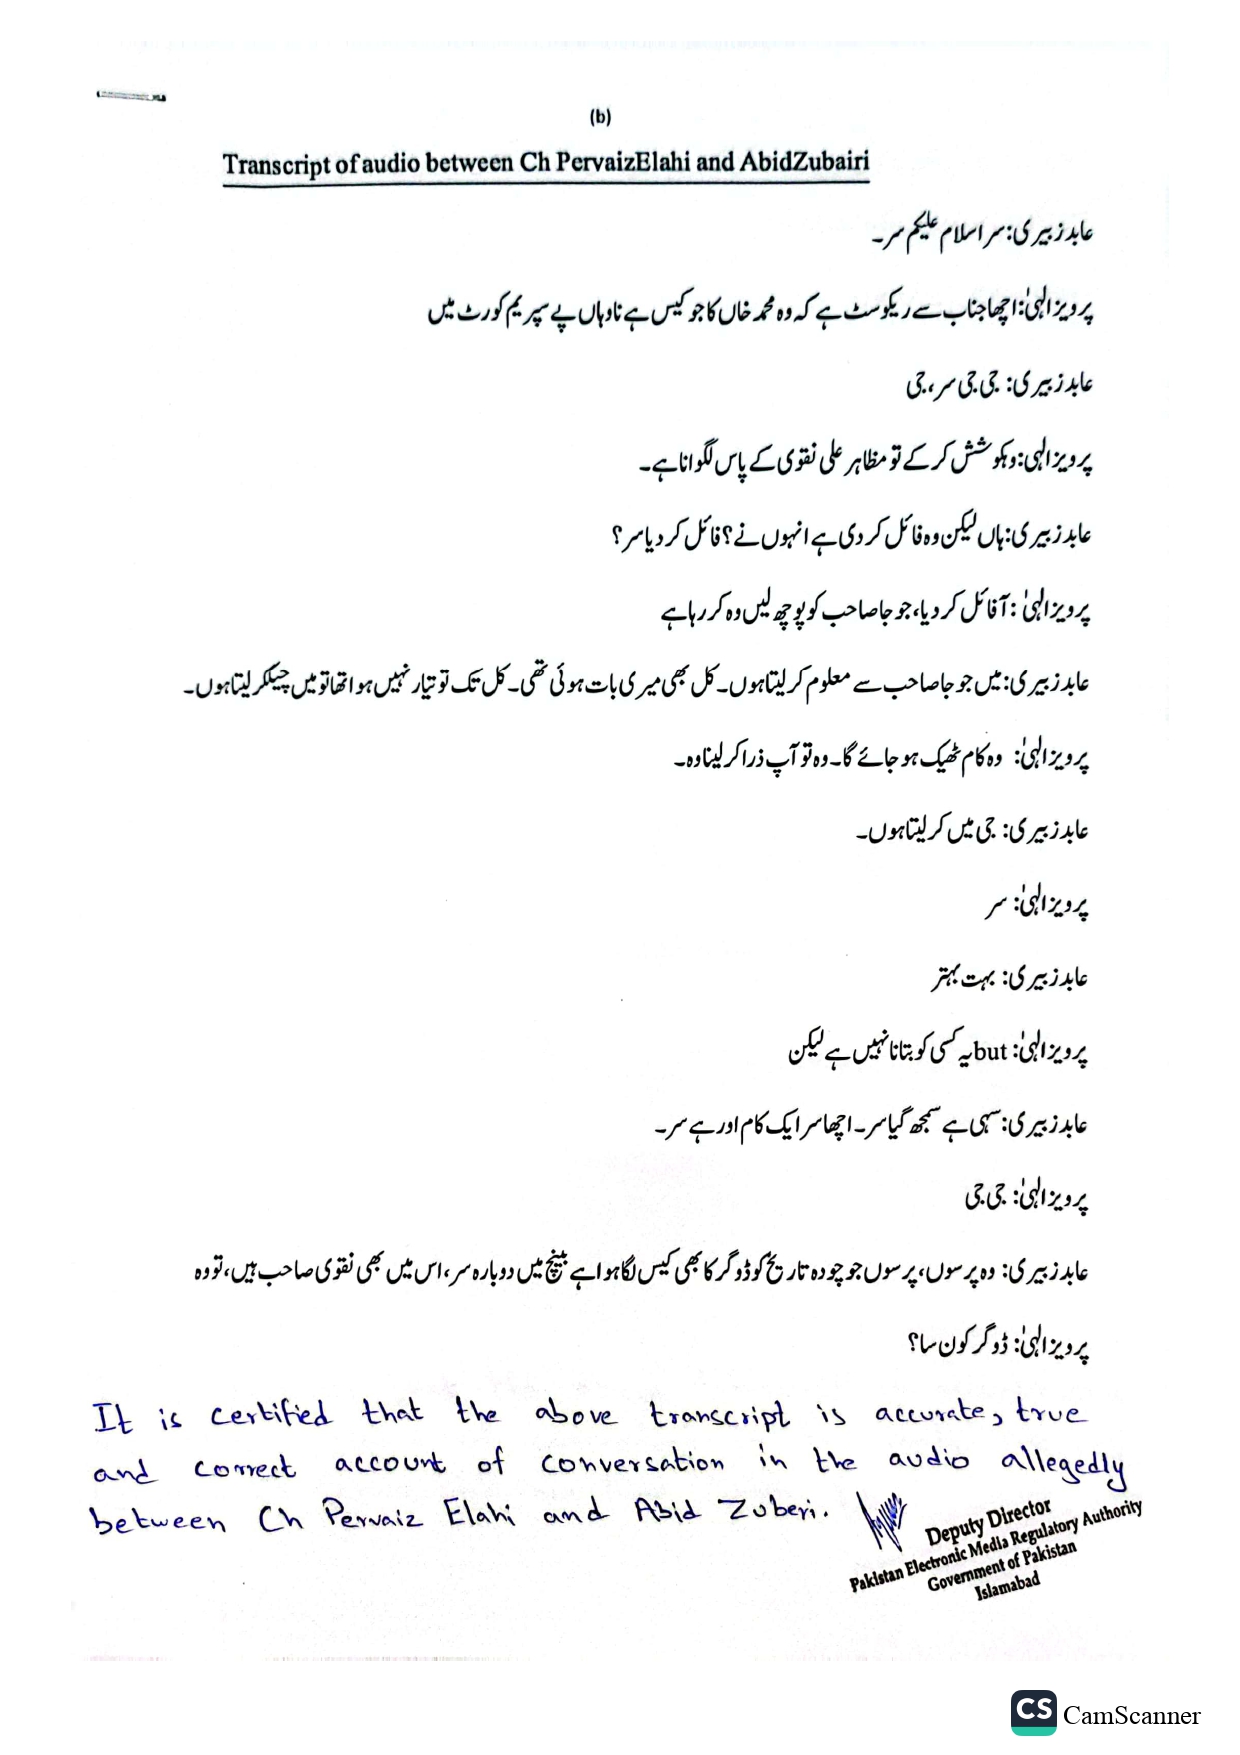 (b)
Transcript of audio between Ch PervaizElahi and AbidZubairi
عابد زبیری: سر اسلام علیکم سر۔
پرویز الٰہیٰ: اچھا جناب سے ریکوسٹ ہے کہ وہ محمد خاں کا جو کیس ہے نا وہاں پے سپریم کورٹ میں
عابد زبیری: جی جی سر، جی
پرویز الٰہی: وہکوشش کر کے تو مظاہر علی نقوی کے پاس لگوانا ہے۔
عابد زبیری: ہاں لیکن وہ فائل کر دی ہے انہوں نے؟ فائل کر دیا سر؟
پرویز الٰہیٰ: آفائل کر دیا، جو جا صاحب کو پوچھ لیں وہ کر رہا ہے
عابد زبیری: میں جو جا صاحب سے معلوم کر لیتا ہوں۔ کل بھی میری بات ہوئی تھی۔ کل تک تو تیار نہیں ہوا تھا تو میں چیککر لیتا ہوں۔
پرویز الٰہیٰ: وہ کام ٹھیک ہو جائے گا۔ وہ تو آپ ذرا کر لینا وہ۔
عابد زبیری: جی میں کر لیتا ہوں۔
پرویز الٰہیٰ: سر
عابد زبیری: بہت بہتر
پرویز الٰہیٰ: but یہ کسی کو بتانا نہیں ہے لیکن
عابد زبیری: سہی ہے سمجھ گیا سر۔ اچھا سر ایک کام اور ہے سر۔
پرویز الٰہیٰ: جی جی
عابد زبیری: وہ پرسوں، پرسوں جو چودہ تاریخ کو ڈوگر کا بھی کیس لگا ہوا ہے بینچ میں دوبارہ سر، اس میں بھی نقوی صاحب ہیں، تو وہ
پرویز الٰہیٰ: ڈوگر کون سا؟
It is certified that the above transcript is accurate, true
and correct account of conversation in the audio allegedly
between Ch Pervaiz Elahi and Abid Zuberi.
Deputy Director
Pakistan Electronic Media Regulatory Authority
Government of Pakistan
Islamabad
CS CamScanner